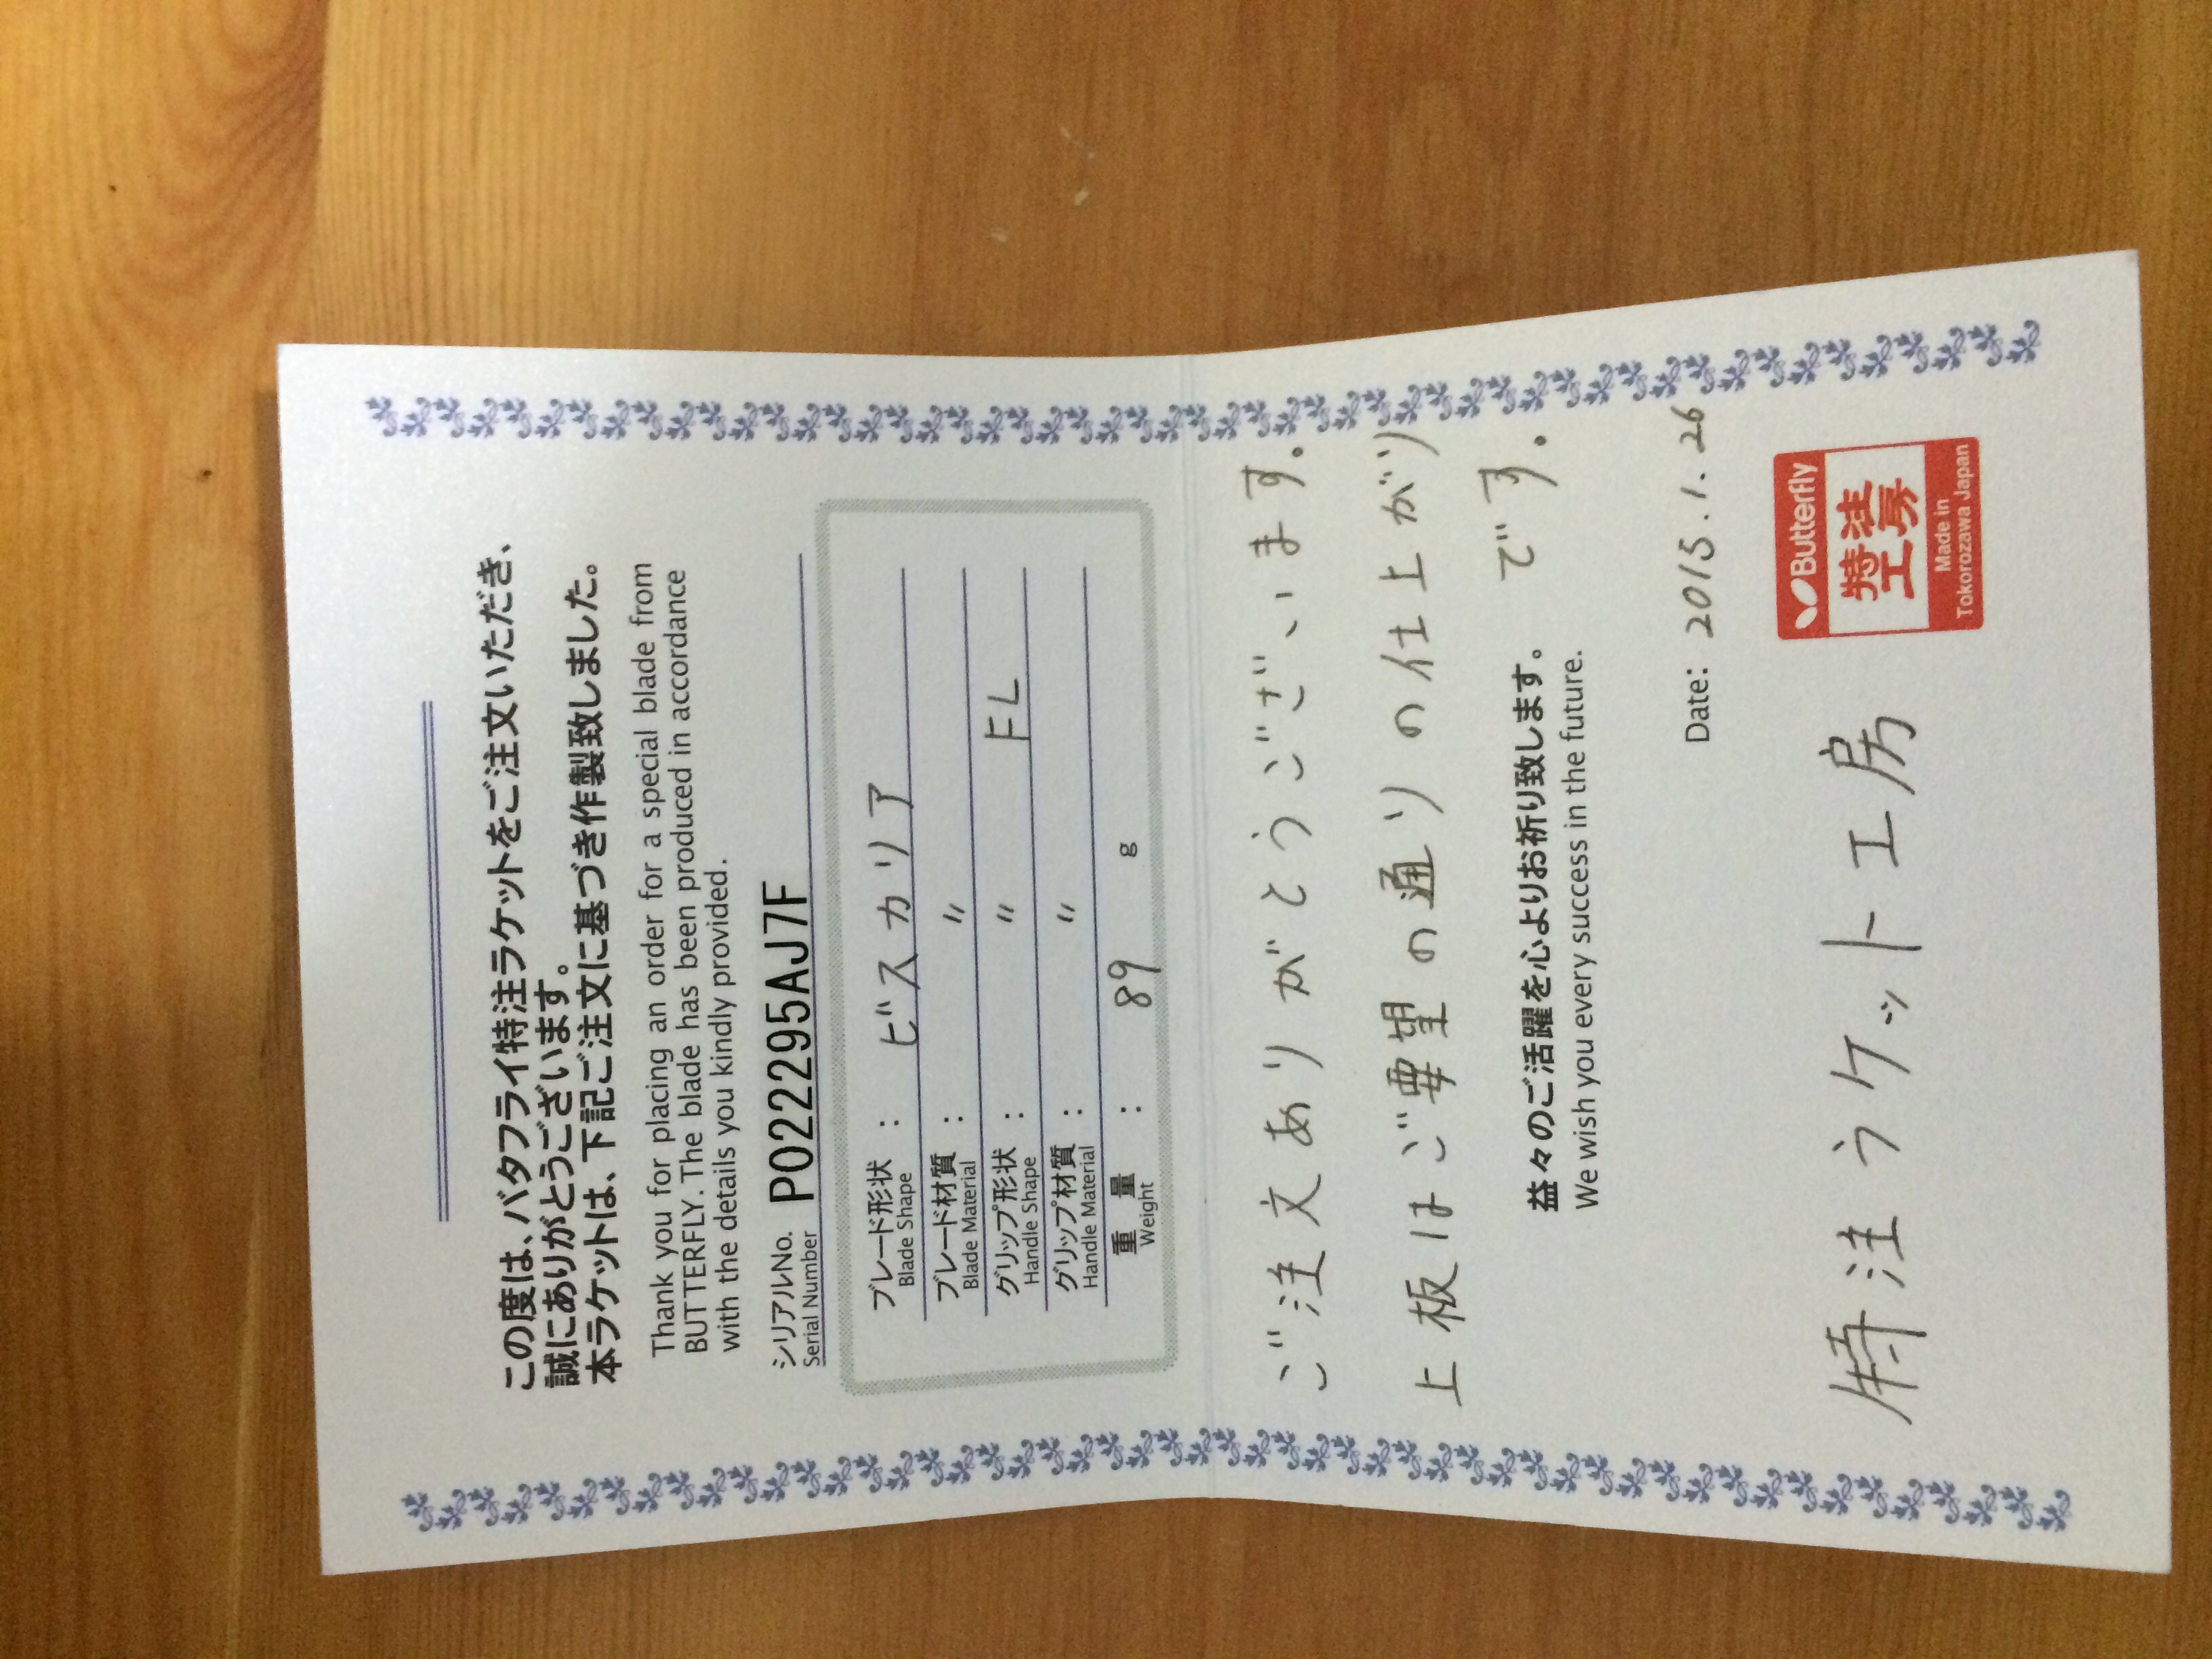 この度は、バタフライ特注ラケットをご注文いただき、
誠にありがとうございます。
本ラケットは、下記ご注文に基づき作製致しました。
Thank you for placing an order for a special blade from
BUTTERFLY. The blade has been produced in accordance
with the details you kindly provided.
シリアルNo. P022295AJ7F
Serial Number
ブレード形状 : ビスカリア
Blade Shape
ブレード材質 : 〃
Blade Material
グリップ形状 : 〃 FL
Handle Shape
グリップ材質 : 〃
Handle Material
重量 : 89 g
Weight
ご注文ありがとうございます。
上板はご要望の通りの仕上がり
です。
益々のご活躍を心よりお祈り致します。
We wish you every success in the future.
Date: 2015.1.26
特注ラケット工房
Butterfly
特注
工房
Made in
Tokorozawa Japan